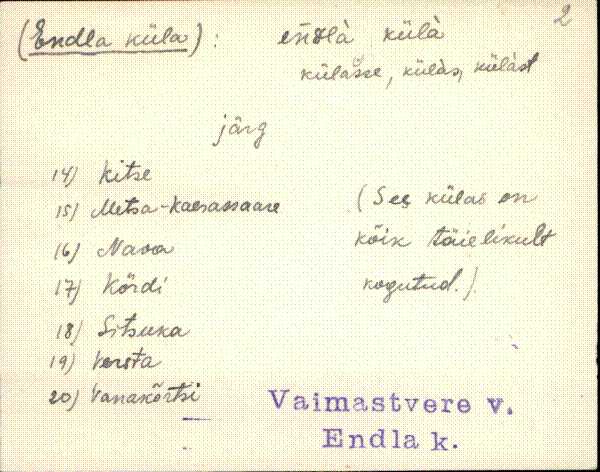 2
(Endla küla): eǹdlà külà
külàsse, külàs, külàst
järg
14) Kitse
15) Metsa-Kaasassaare
16) Nava
17) Kõrdi
18) Sitsuka
19) Versta
20) Vanakõrtsi
(See külas on
kõik täielikult
kogutud.)
Vaimastvere v.
Endla k.